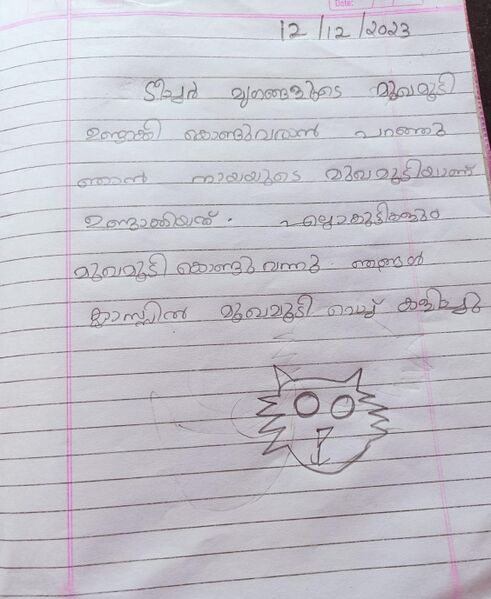 Date:
12/12/2023
ടീച്ചർ മൃഗങ്ങളുടെ മുഖമൂടി
ഉണ്ടാക്കി കൊണ്ടുവരാൻ പറഞ്ഞു
ഞാൻ നായയുടെ മുഖമൂടിയാണ്
ഉണ്ടാക്കിയത്. എല്ലാകുട്ടികളും
മുഖംമൂടി കൊണ്ടു വന്നു ഞങ്ങൾ
ക്ലാസ്സിൽ മുഖമൂടി വെച്ച് കളിച്ചു